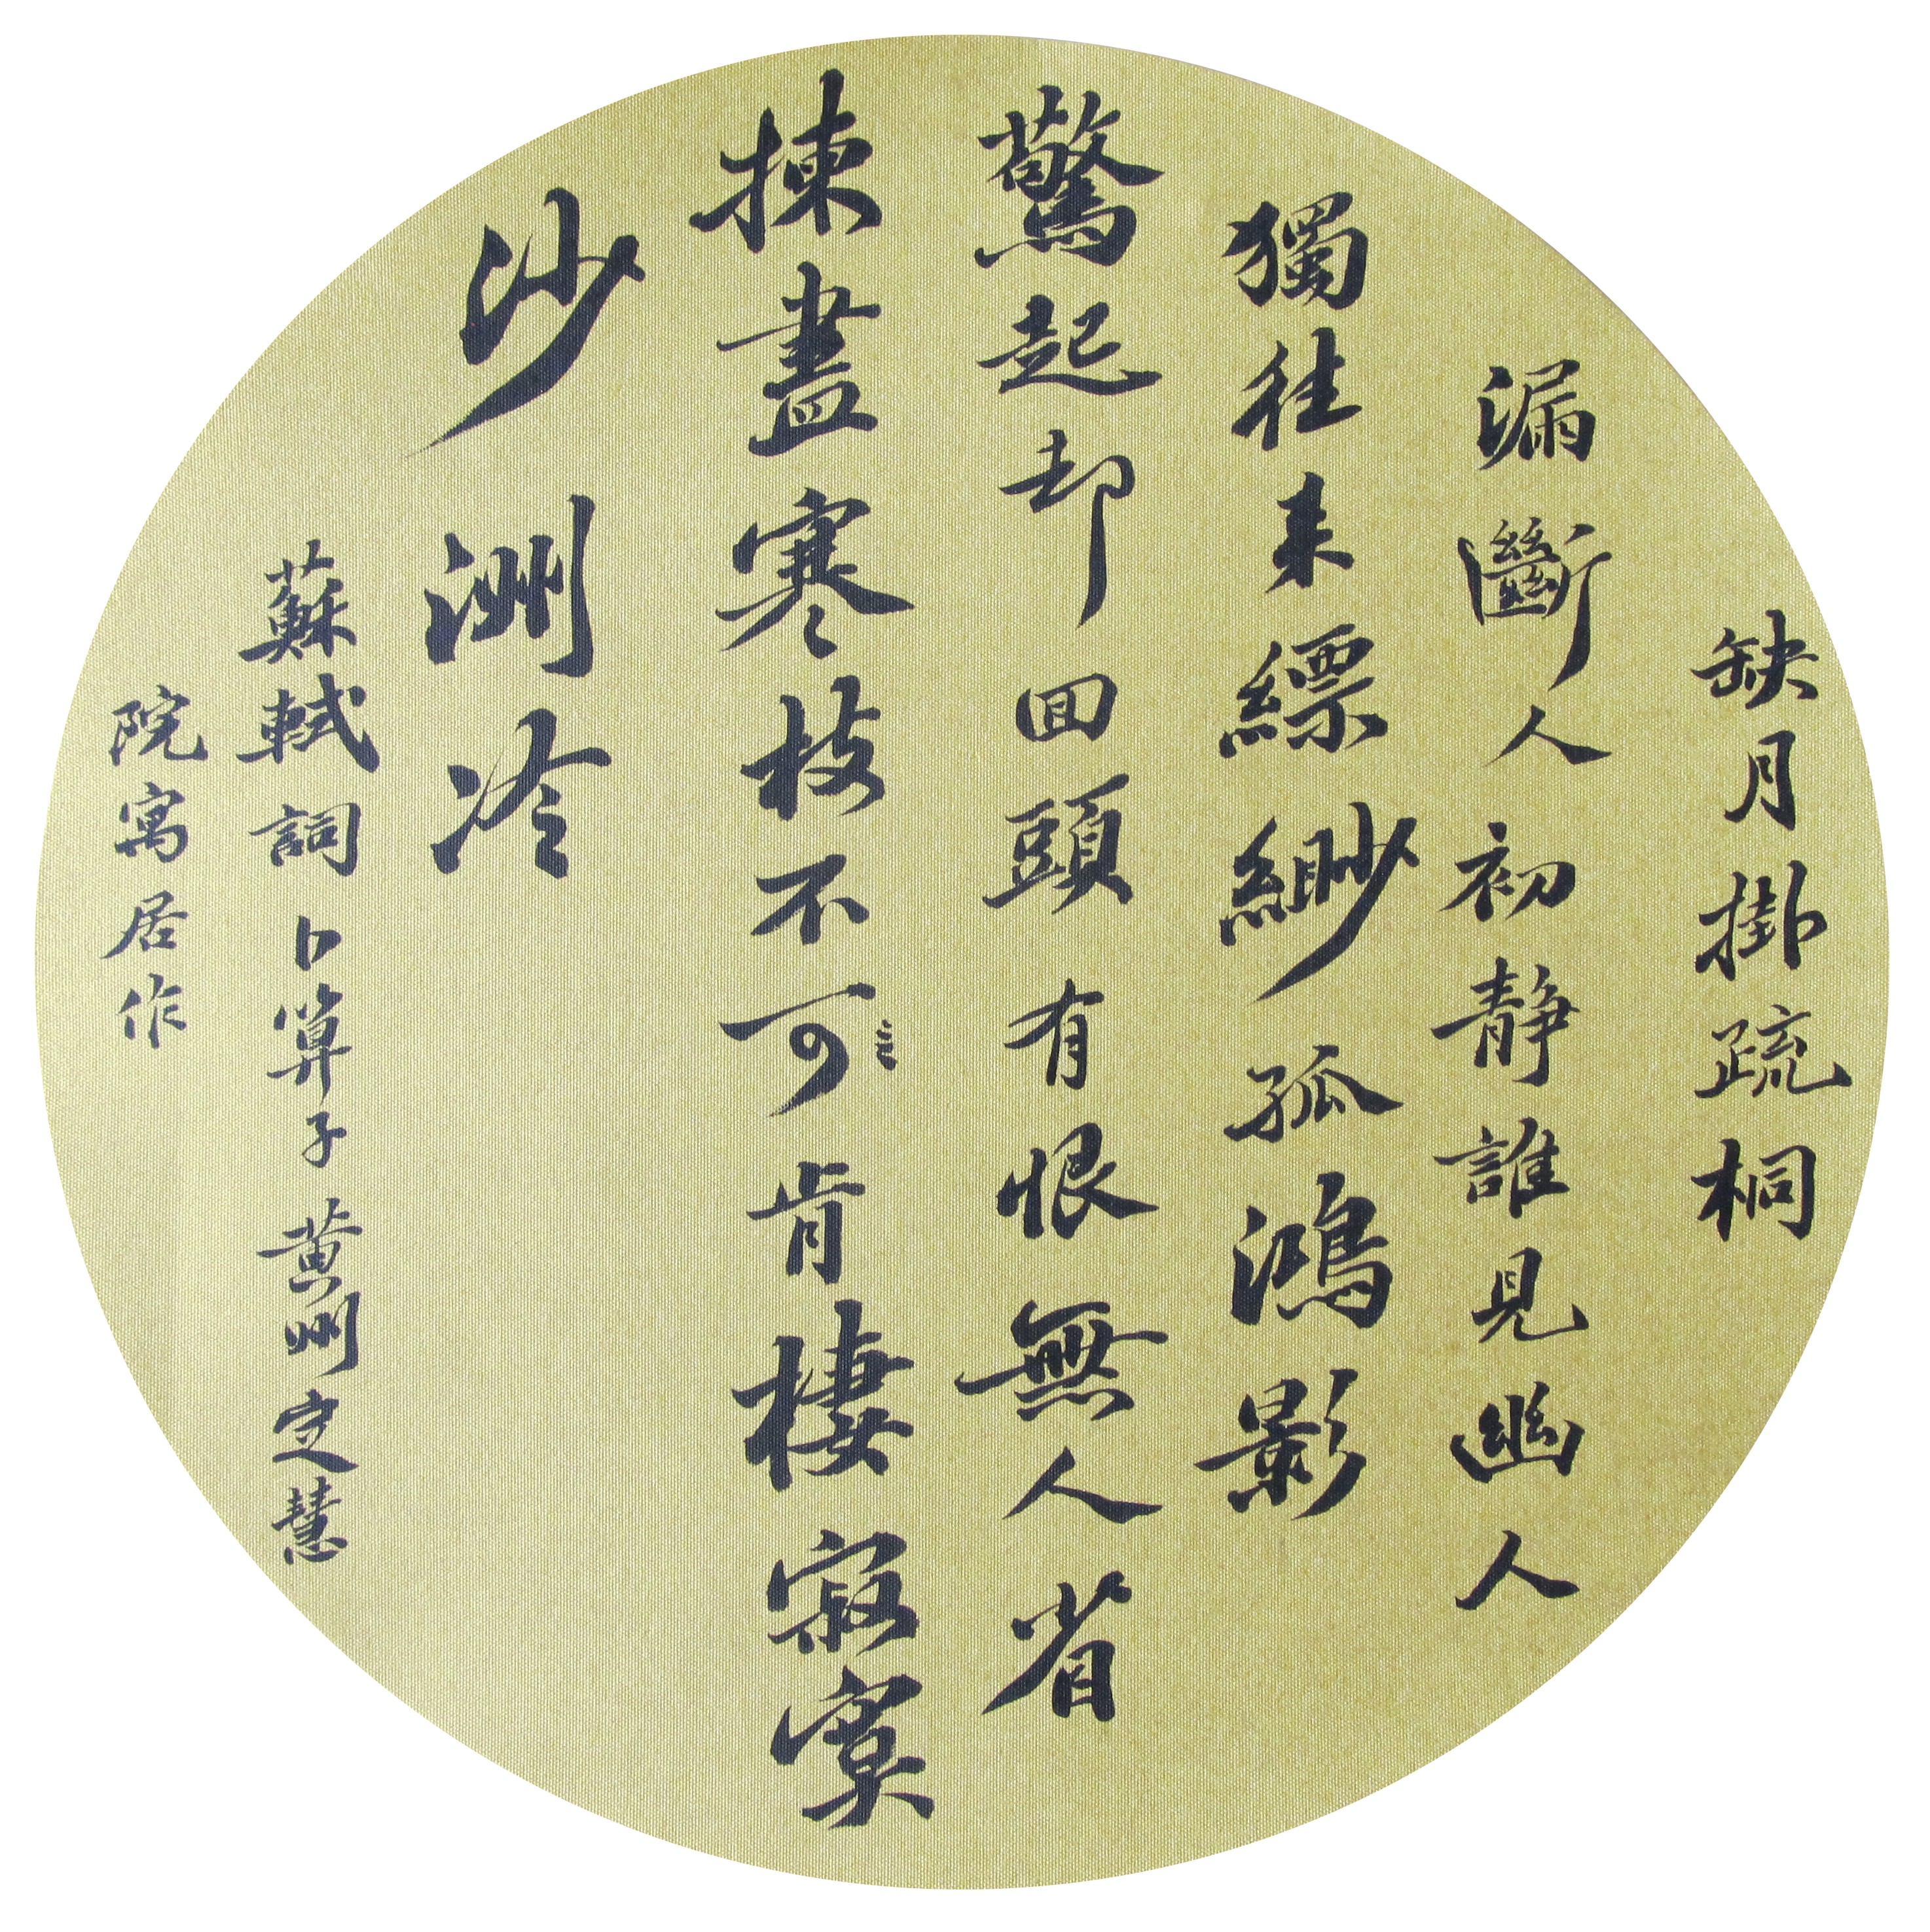 缺月掛疏桐
漏斷人初静誰見幽人
獨往来縹緲孤鴻影
驚起却回頭有恨無人省
揀盡寒枝不可肯棲寂寞
沙洲冷
蘇軾詞卜算子黄州定慧
院寓居作